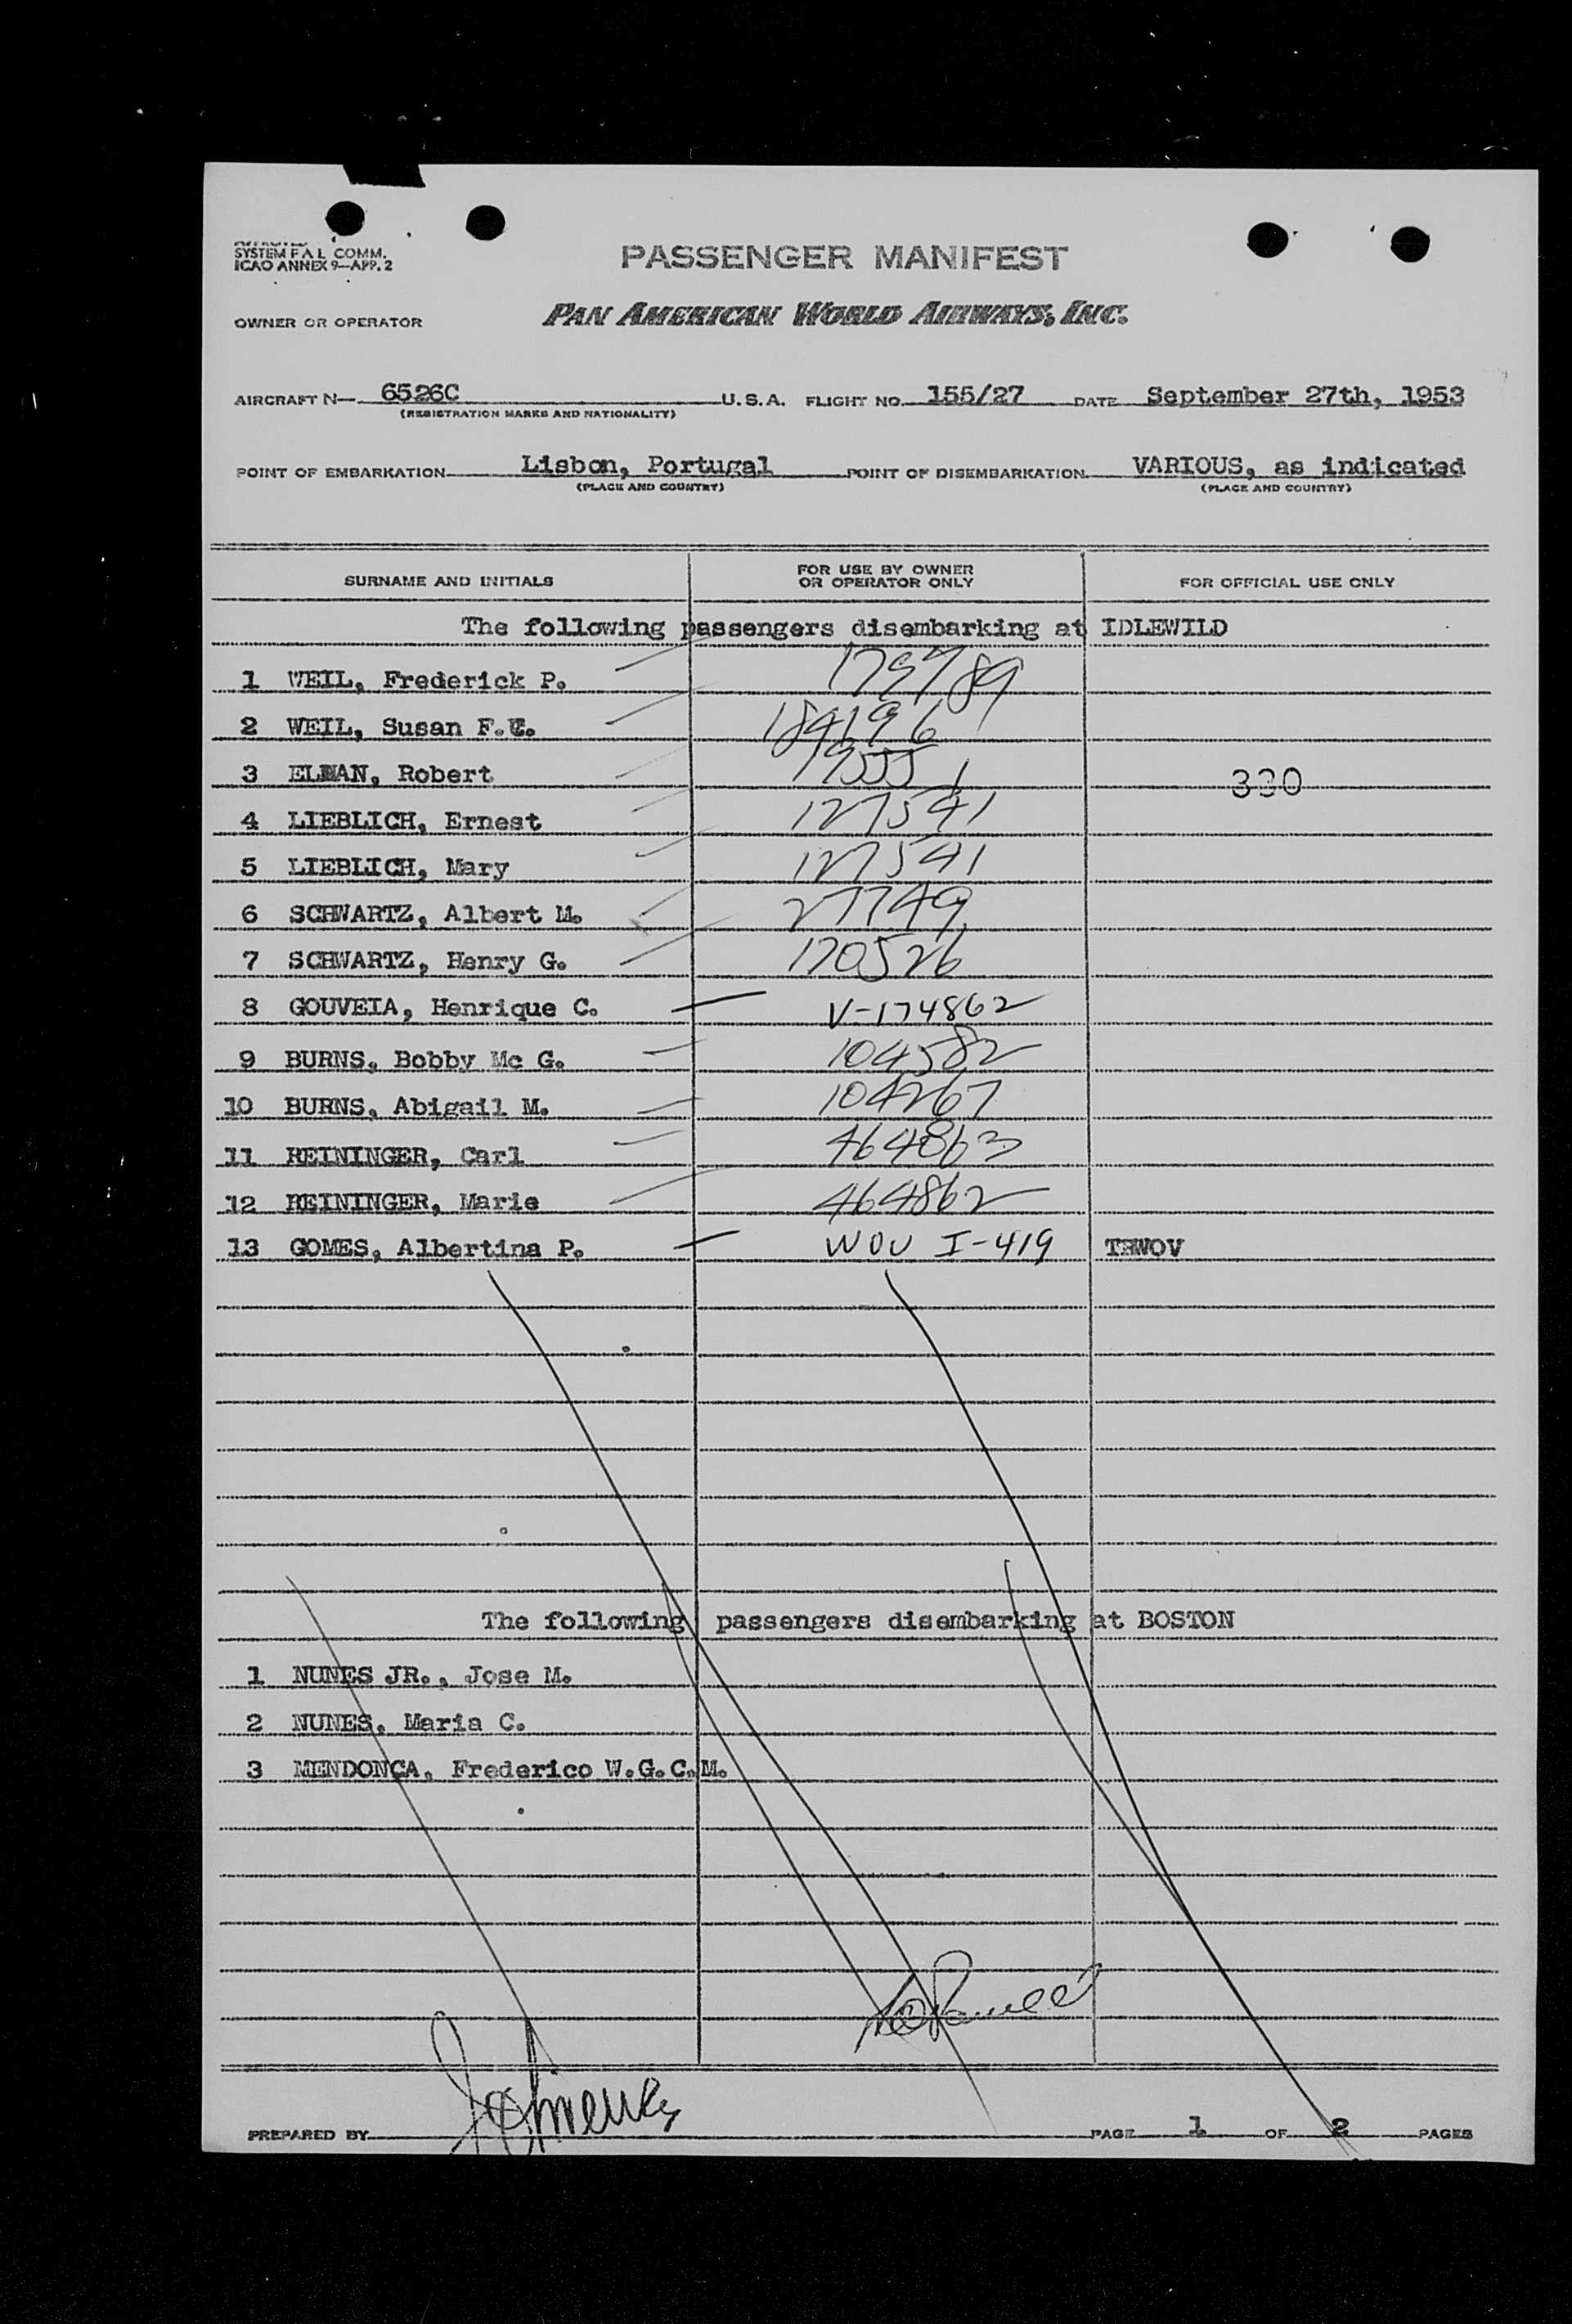 SYSTEM F A L COMM.
ICAO ANNEX 9—APP. 2
PASSENGER MANIFEST
OWNER OR OPERATOR PAN AMERICAN WORLD AIRWAYS, INC.
AIRCRAFT N— 6526C U.S.A. FLIGHT NO. 155/27 DATE September 27th, 1953
(REGISTRATION MARKS AND NATIONALITY)
POINT OF EMBARKATION Lisbon, Portugal POINT OF DISEMBARKATION VARIOUS, as indicated
(PLACE AND COUNTRY) (PLACE AND COUNTRY)
SURNAME AND INITIALS FOR USE BY OWNER OR OPERATOR ONLY FOR OFFICIAL USE ONLY
The following passengers disembarking at IDLEWILD
1 WEIL, Frederick P. 179789
2 WEIL, Susan F.E. 184196
3 ELMAN, Robert 19555 330
4 LIEBLICH, Ernest 127541
5 LIEBLICH, Mary 127541
6 SCHWARTZ, Albert M. 27749
7 SCHWARTZ, Henry G. 170526
8 GOUVEIA, Henrique C. V-174862
9 BURNS, Bobby Mc G. 104582
10 BURNS, Abigail M. 104267
11 REININGER, Carl 464863
12 REININGER, Marie 464862
13 GOMES, Albertina P. WOV I-419 TRWOV
The following passengers disembarking at BOSTON
1 NUNES JR., Jose M.
2 NUNES, Maria C.
3 MENDONCA, Frederico W.G.C.M.
PREPARED BY PAGE 1 OF 2 PAGES